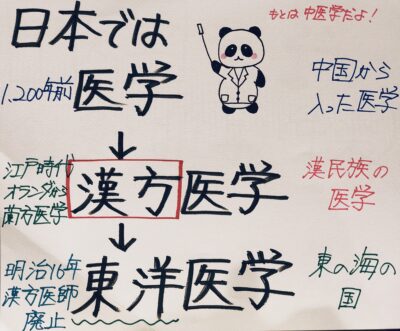 日本では
もとは中医学だよ！
1,200年前
医学
中国から
入った医学
江戸時代
オランダから
蘭方医学
漢方医学
漢民族の
医学
明治16年
漢方医師
廃止
東洋医学
東の海の
国